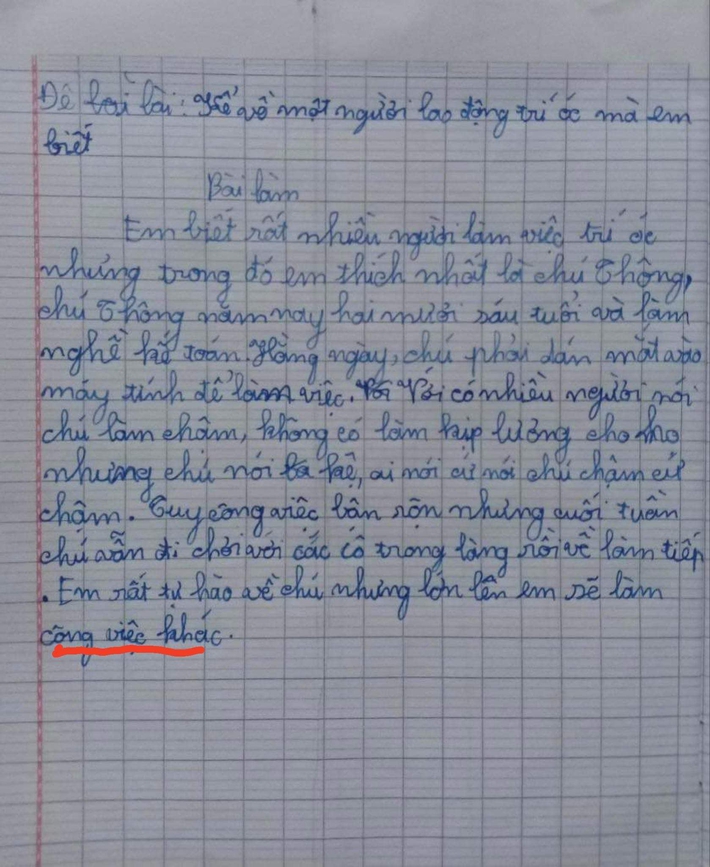 Đề bài bài: Kể về một người lao động trí óc mà em
biết
Bài làm
Em biết rất nhiều người làm việc trí óc
nhưng trong đó em thích nhất là chú Thông,
chú Thông năm nay hai mươi sáu tuổi và làm
nghề kế toán. Hằng ngày, chú phải dán mắt vào
máy tính để làm việc. Với có nhiều người nói
chú làm chậm, không có làm kịp lương cho họ
nhưng chú nói là kệ, ai nói cứ nói chú chậm cứ
chậm. Tuy công việc bận rộn nhưng cuối tuần
chú vẫn đi chơi với các cô trong làng rồi về làm tiếp
. Em rất tự hào về chú nhưng lớn lên em sẽ làm
công việc khác.